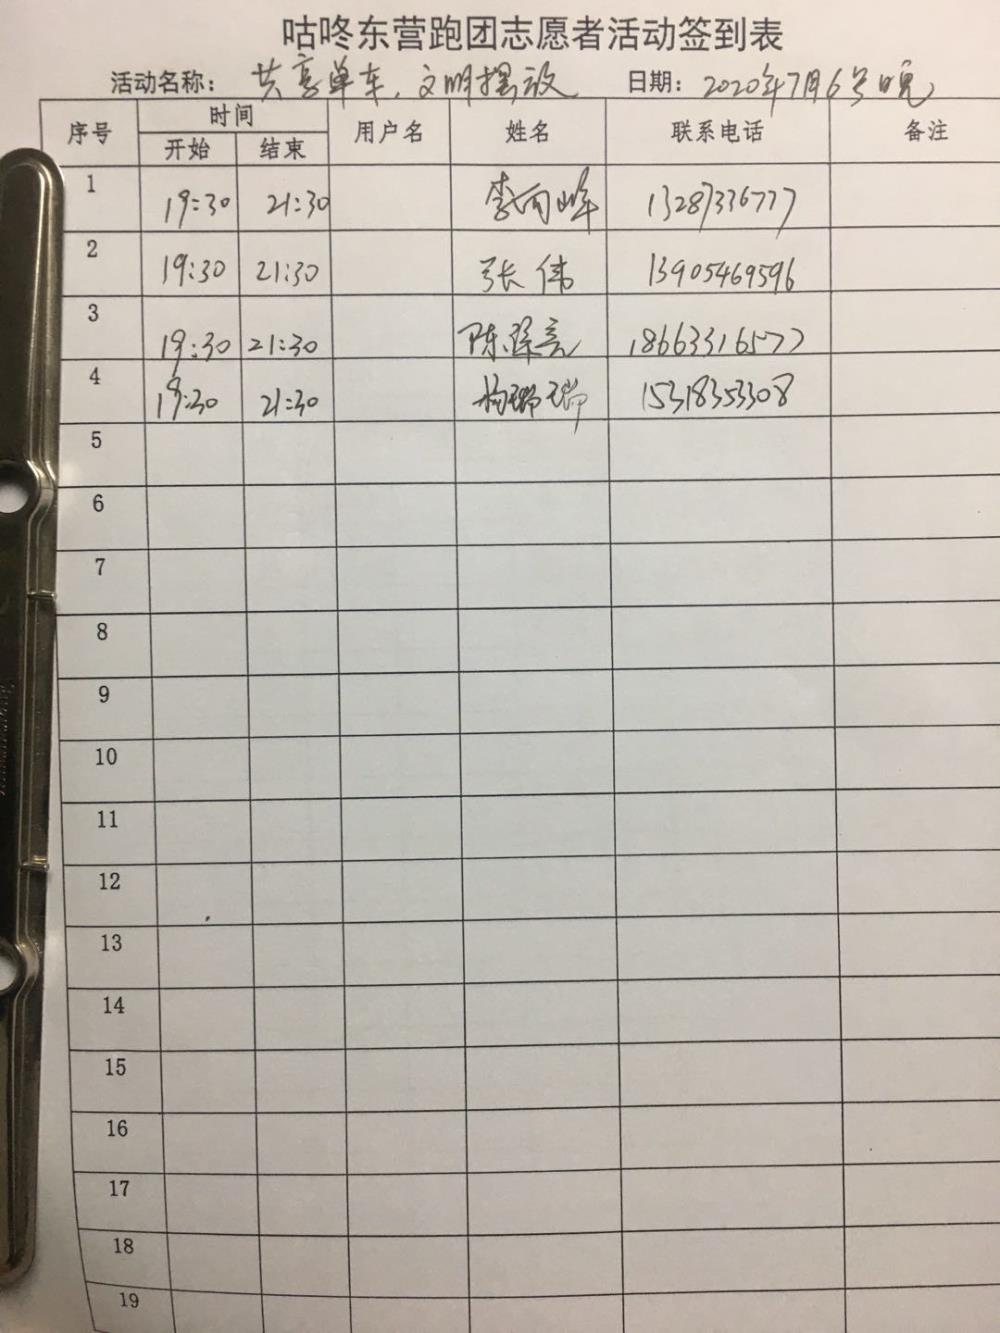 咕咚东营跑团志愿者活动签到表
活动名称： 共享单车，文明摆放 日期： 2020年7月6号晚
序号 时间 用户名 姓名 联系电话 备注
开始 结束
1 19:30 21:30 李向峰 13287336777
2 19:30 21:30 张伟 13905469596
3 19:30 21:30 陈 亮 18663316577
4 19:30 21:30 杨瑞瑞 15318353308
5
6
7
8
9
10
11
12
13
14
15
16
17
18
19